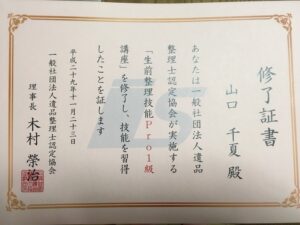 修了証書
山口 千夏 殿
あなたは一般社団法人遺品
整理士認定協会が実施する
「生前整理技能Pro1級
講座」を修了し、技能を習得
したことを証します
平成二十九年十一月二十三日
一般社団法人遺品整理士認定協会
理事長 木村 榮治